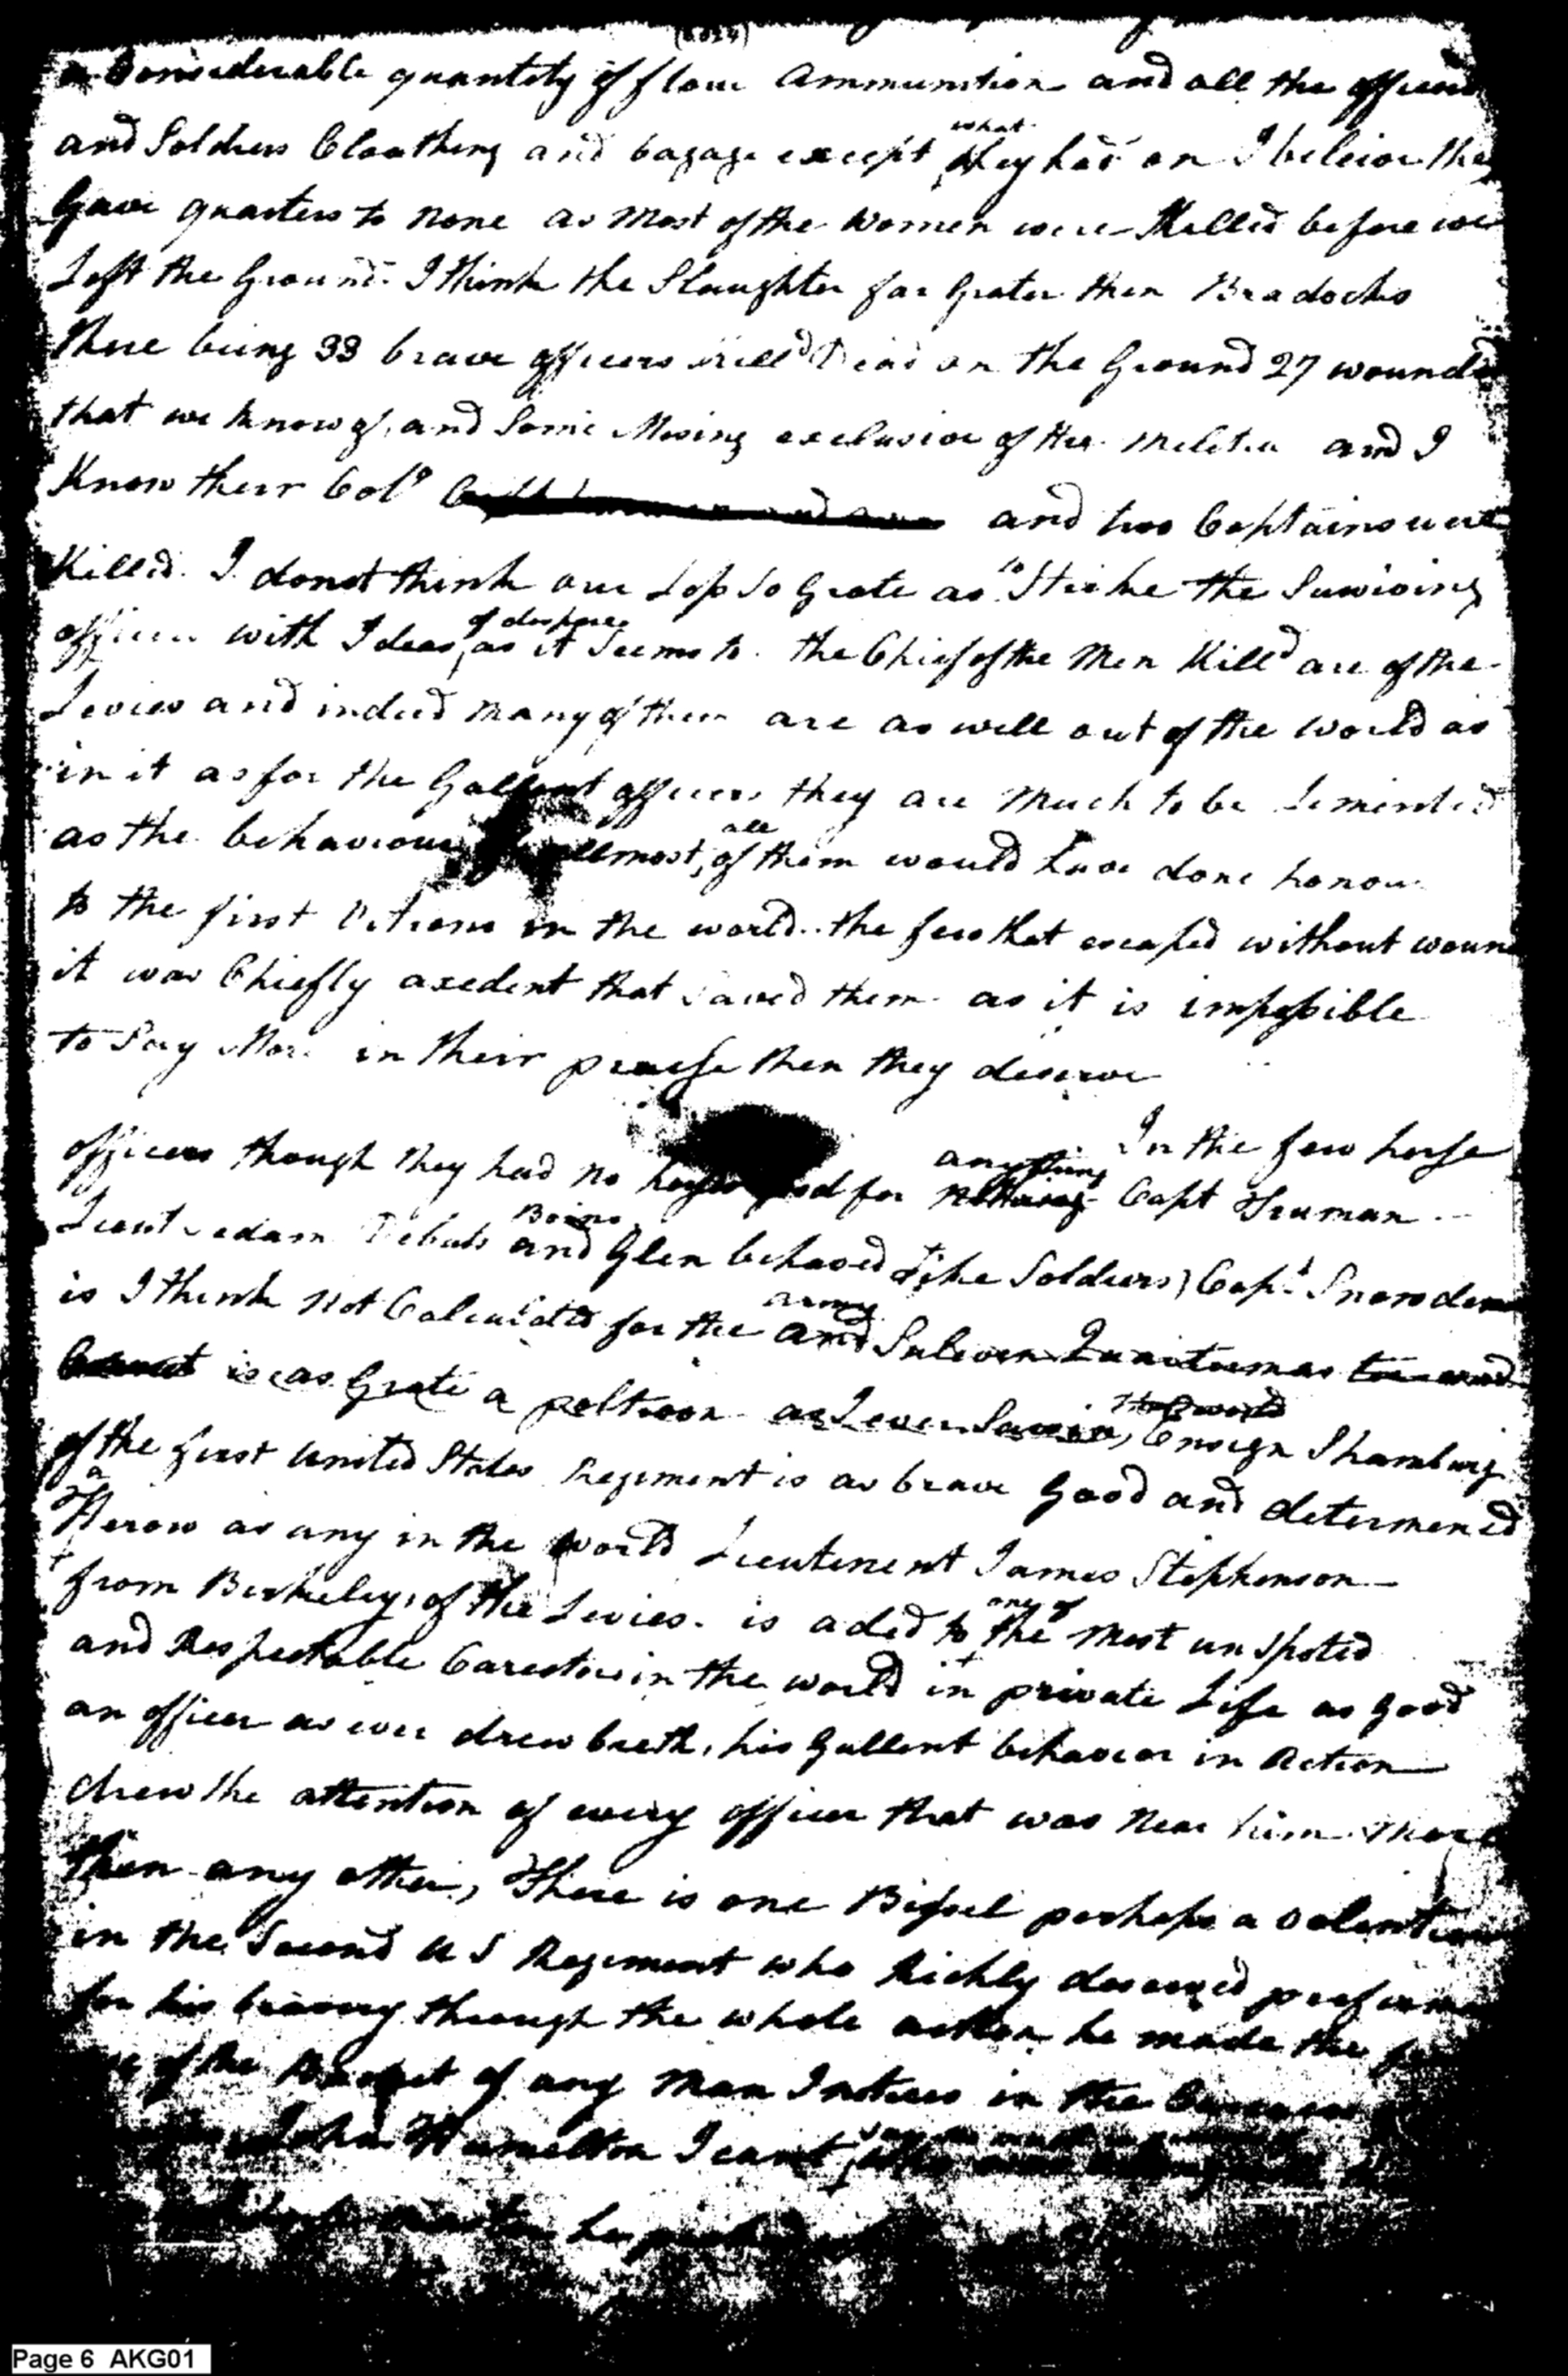 a Considerable quantity of flour ammunition and all the officers
and Soldiers Cloathing and bagage except what they had on I beleive they
Gave quarters to none as Most of the Women were Killed before we
Left the Ground. I think the Slaughter far Grater then Bradocks
there being 33 brave officers Killd Dead on the Ground 27 wounded
that we know of, and Some Mising exclusive of the Melitia and I
Know their Colo and two Captains were
Killed. I do not think our Loss so Grate as to Strike the Surviving
officers with Ideas of dispare, as it Seems to. the Chief of the Men Killd are of the
Levies and indeed Many of them are as well out of the World as
in it as for the Gallent officers they are Much to be Lemented
as the behaviour allmost, all of them would have done honour
to the first Vetrans in the world. the few that escaped without wound
it was Chiefly axedent that Saved them as it is impossible
to Say More in their praise then they deserve
In the few horse
officers though they had no horse good for anything Capt Truman
Lieut Debuts Boins and Glen behaved Like Soldiers, Capt Snowden
is I think Not Calculated for the army and
is as Grate a poltroon as Ever the world, Ensign Shamburg
of the first United States Regiment is as brave Good and determened
a Herow as any in the world Lieutenent James Stephenson
from Berkeley, of the Levies. is aded to one of the Most unspoted
and Respectable Carectors in the world in private Life as Good
an officer as ever drew breth, his Gallent behavior in Action
drew the attention of every officer that was Near him More
then any other, There is one Bissel perhaps a volentier
in the Second U S Regiment who Richly deserved
for his bravery through the whole action he made the
of the of any Man I Notised in the
John Hamelton I cant
he
Page 6 AKG01